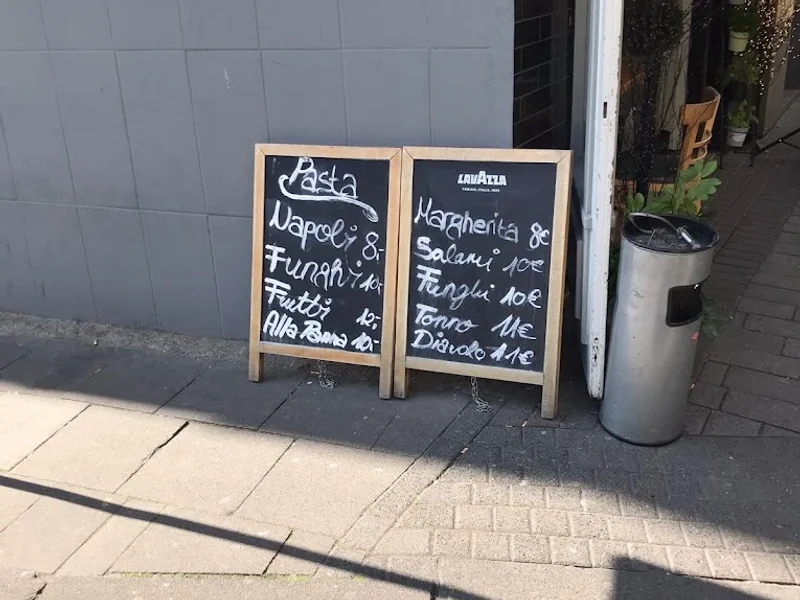 Pasta
Napoli 8,-
Funghi 10,-
Frutti 12,-
Alla Panna 10,-
LAVAZZA
TORINO, ITALIA, 1895
Margherita 8€
Salami 10€
Funghi 10€
Tonno 11€
Diavolo 11€